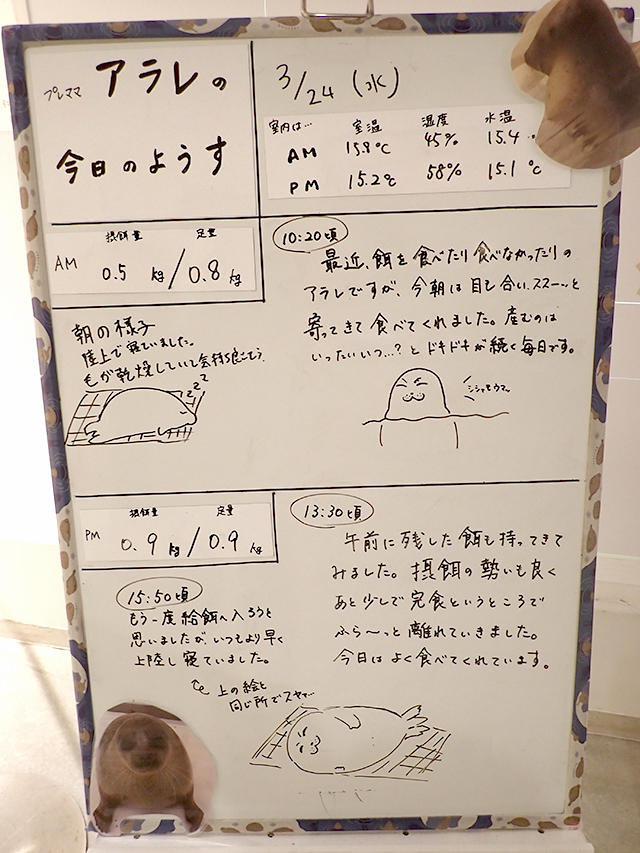 プレママ アラレの
今日のようす
3/24 (水)
室内は… 室温 湿度 水温
AM 15.9℃ 45% 15.4
PM 15.2℃ 58% 15.1℃
摂餌量 定量
AM 0.5kg/0.8kg
10:20頃
最近、餌を食べたり食べなかったりの
アラレですが、今朝は目も合い、ススーッと
寄ってきて食べてくれました。産むのは
いったいいつ…?とドキドキが続く毎日です。
シシャモウマー
朝の様子
陸上で寝ていました。
毛が乾燥していて気持ち良さそう。
zzzz
摂餌量 定量
PM 0.9kg/0.9kg
13:30頃
午前に残した餌も持ってきて
みました。摂餌の勢いも良く
あと少しで完食というところで
ふら〜っと離れていきました。
今日はよく食べてくれています。
15:50頃
もう一度給餌へ入ろうと
思いましたが、いつもより早く
上陸し寝ていました。
上の絵と
同じ所でスヤァ…